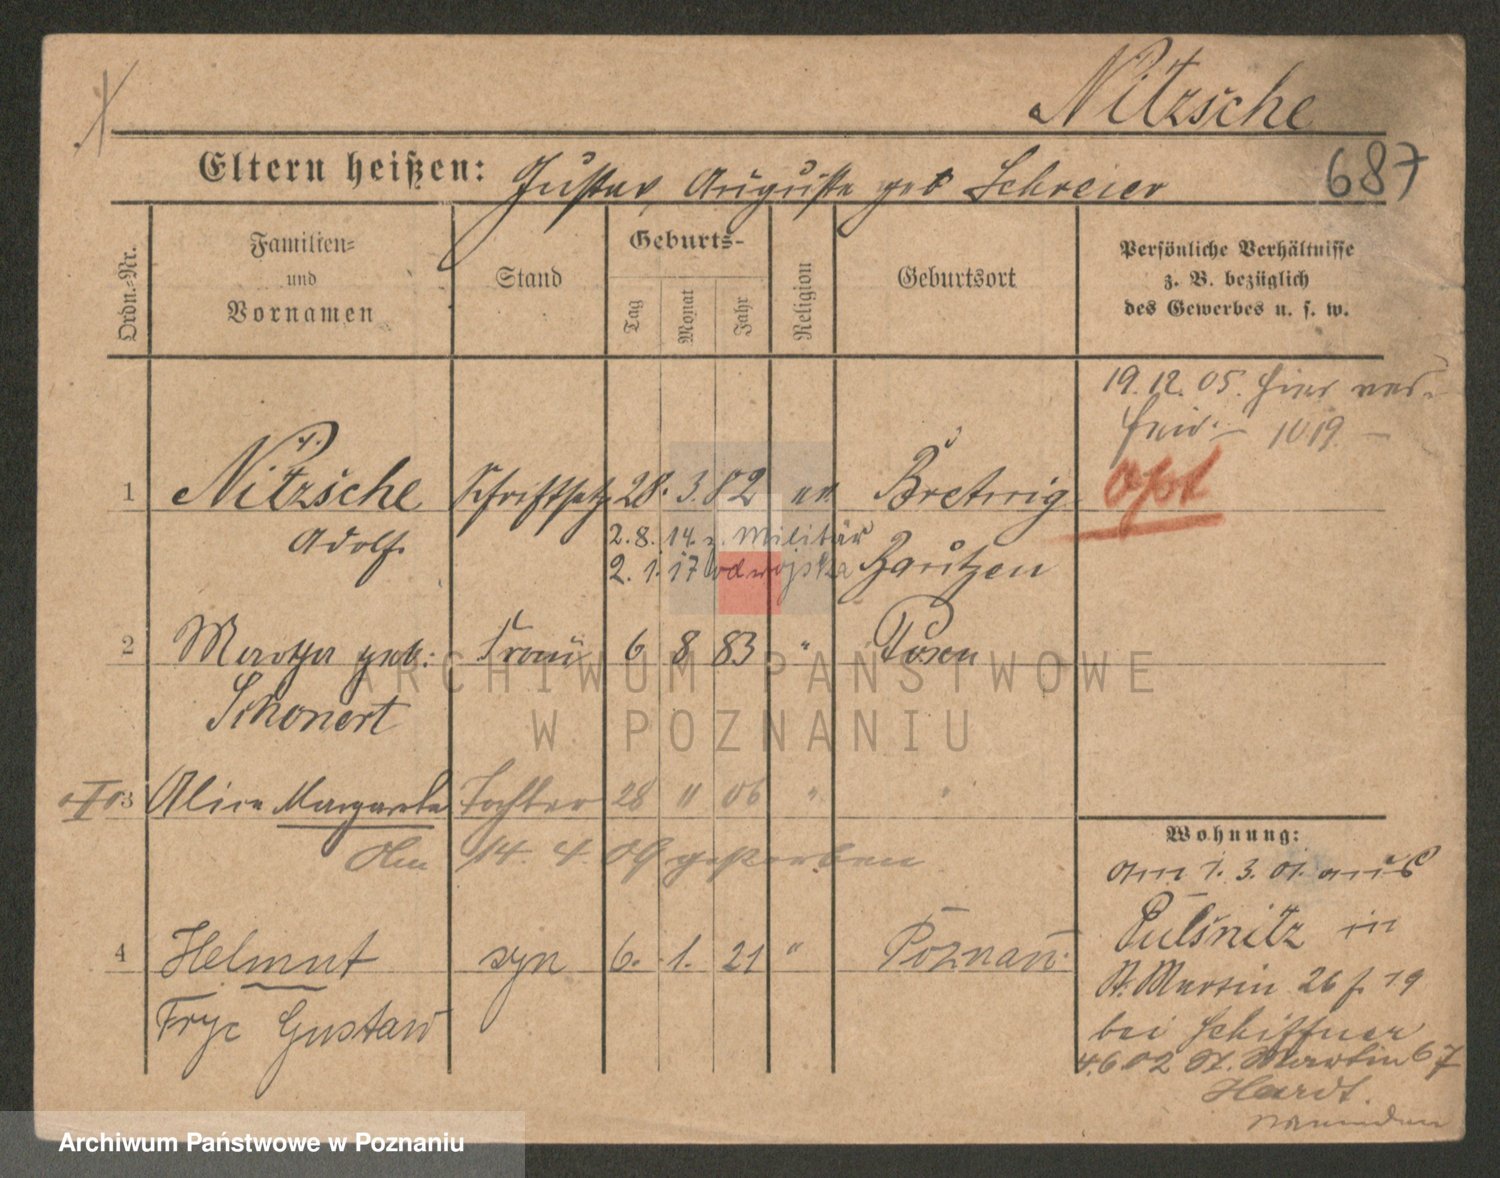 Nitzsche
687
Eltern heißen: Gustav, Auguste geb Schreier
Ordn.-Nr.
Familien-
und
Vornamen
Stand
Geburts-
Tag
Monat
Jahr
Religion
Geburtsort
Persönliche Verhältnisse
z. B. bezüglich
des Gewerbes u. s. w.
19. 12. 05. hier ver-
heir. — 1019. —
opt
1 Nitzsche Schriftsetz 28. 3. 82 ev. Bretnig
Adolf
2. 8. 14. z. Militär
2. 1. 17 od wojska
Bautzen
2 Martha geb: Frau 6 8 83 " Posen
Schonert
3 Alice Margarete Tochter 28 11 06 " "
Am 14. 4. 09 gestorben
4 Helmut syn 6. 1. 21 " Poznań
Fryc Gustaw
Wohnung:
am 1. 3. 01. aus
Pulsnitz in
St. Martin 26 f. 19
bei Schiffner
4.6 02 St. Martin 67
Hardt.
ARCHIWUM PAŃSTWOWE
W POZNANIU
Archiwum Państwowe w Poznaniu